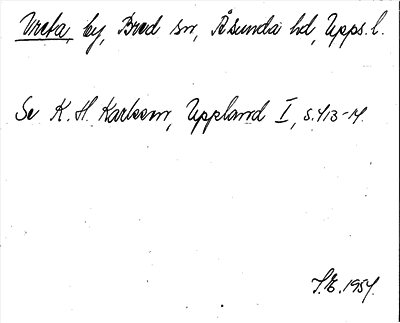 Vreta, by, Bred sn, Åsunda hd, Upps. l.
Se K. H. Karlsson, Uppland I, s. 413-14.
S.E. 1954.